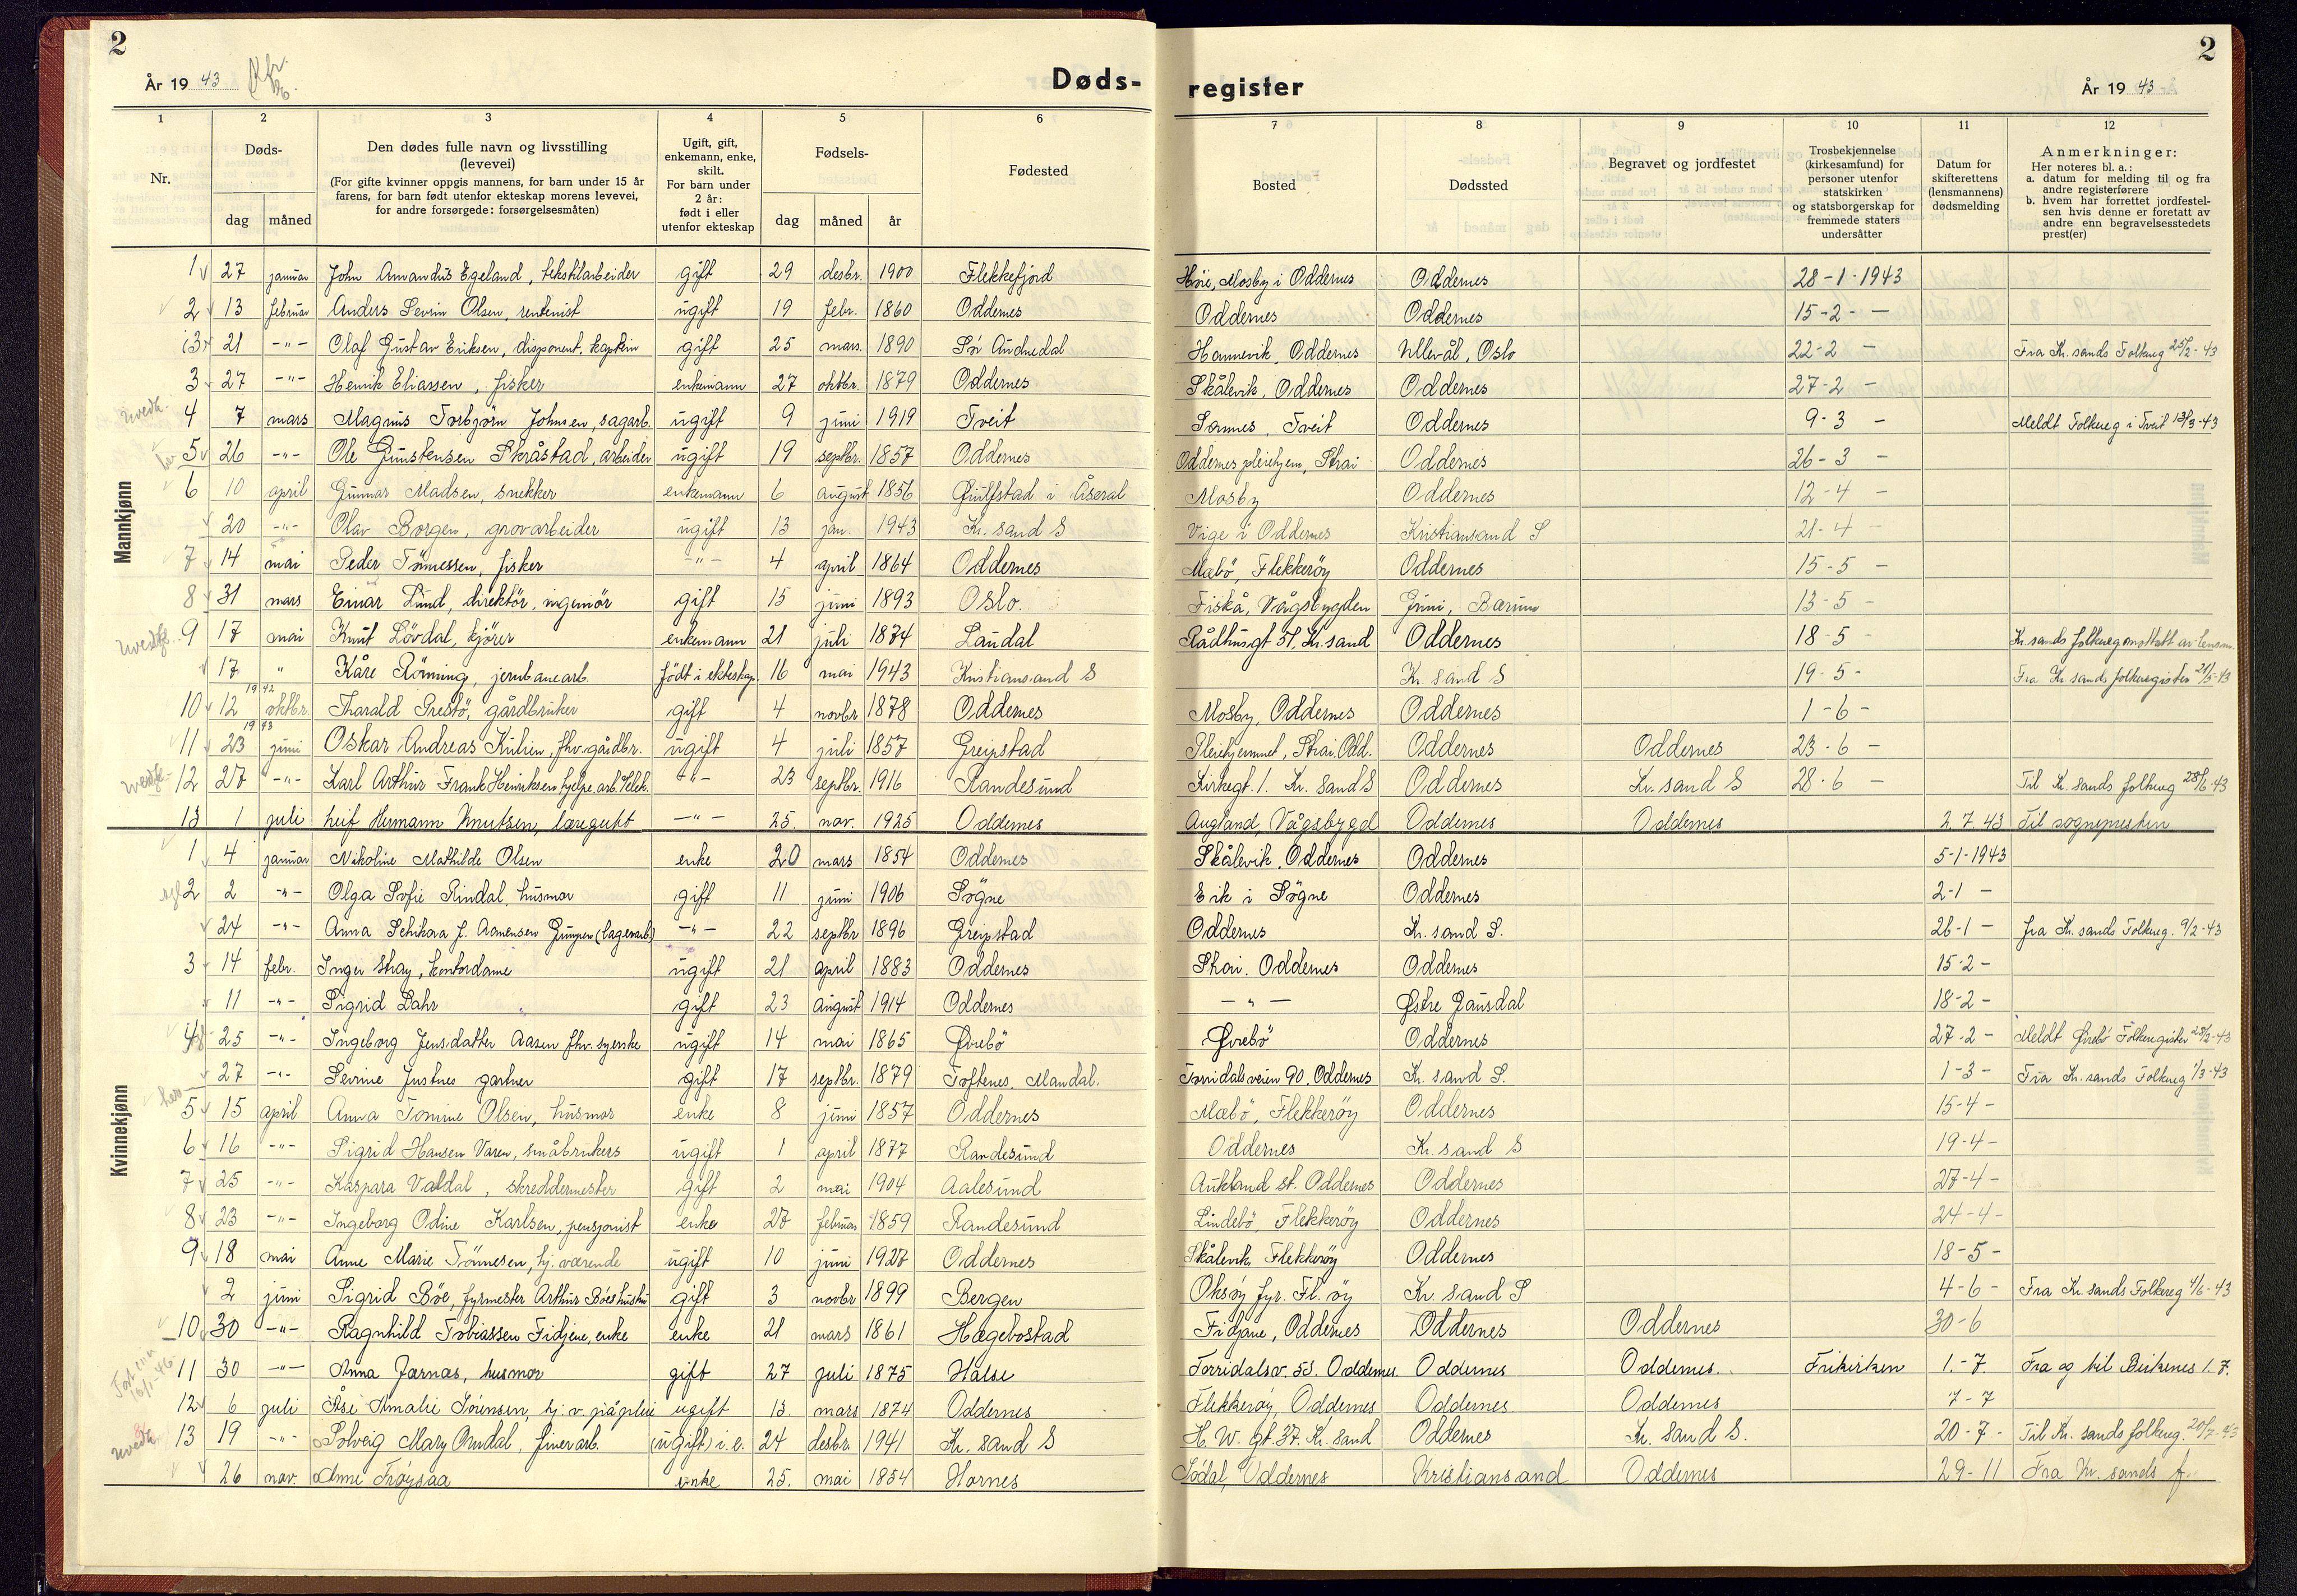 2
År 19 43
Døds-
1 2 3 4 5 6
Nr.
Døds-
dag måned
Den dødes fulle navn og livsstilling
(levevei)
(For gifte kvinner oppgis mannens, for barn under 15 år
farens, for barn født utenfor ekteskap morens levevei,
for andre forsørgede: forsørgelsesmåten)
Ugift, gift,
enkemann, enke,
skilt.
For barn under
2 år:
født i eller
utenfor ekteskap
Fødsels-
dag måned år
Fødested
2
register
År 19 43
7 8 9 10 11 12
Bosted
Dødssted
Begravet og jordfestet
Trosbekjennelse
(kirkesamfund) for
personer utenfor
statskirken
og statsborgerskap for
fremmede staters
undersåtter
Datum for
skifterettens
(lensmannens)
dødsmelding
Anmerkninger:
Her noteres bl. a.:
a. datum for melding til og fra
andre registerførere
b. hvem har forrettet jordfestel-
sen hvis denne er foretatt av
andre enn begravelsesstedets
prest(er)
Mannkjønn
1 27 januar John Amandus Egeland, tekstilarbeider gift 29 desbr. 1900 Flekkefjord Høie, Mosby i Oddernes Oddernes 28-1-1943
2 13 februar Anders Sevrin Olsen, rentenist ugift 19 febr. 1860 Oddernes Oddernes Oddernes 15-2- —
21 -"- Olaf Gustav Eriksen, disponent, kaptein gift 25 mars. 1890 Sør Audnedal Hannevik, Oddernes Ullevål, Oslo 22-2 — Fra Kr. sands Folkereg 25/2-43
3 27 -"- Henrik Eliassen, fisker enkemann 27 oktbr. 1879 Oddernes Skålevik, Oddernes Oddernes 27-2 —
4 7 mars Magnus Torbjørn Johnsen, sagarb. ugift 9 juni 1919 Tveit Sannes, Tveit Oddernes 9-3 — Meldt Folkereg i Tveit 13/3-43
5 26 -"- Ole Gunstensen Skråstad, arbeider ugift 19 septbr. 1857 Oddernes Oddernes pleiehjem, Strai Oddernes 26-3 —
6 10 april Gunnar Madsen, snekker enkemann 6 august 1856 i Åseral Mosby Oddernes 12-4 —
20 -"- Olav Borgen, grovarbeider ugift 13 jan. 1943 Kr. sand S Vige i Oddernes Kristiansand S 21-4 —
7 14 mai Peder Tønnessen, fisker -"- 4 april 1864 Oddernes Mæbø, Flekkerøy Oddernes 15-5 —
8 31 mars Einar Lund, direktør, ingeniør gift 15 juni 1893 Oslo. Fiskå, Vågsbygden Bærum 13-5 —
9 17 mai Knut Løvdal, kjører enkemann 21 juli 1874 Laudal Rådhusgt 51, Kr. sand Oddernes 18-5 — Kr. sands folkereg mottatt av lensm.
17 " Kåre Rønning, jernbanearb. født i ekteskap. 16 mai 1943 Kristiansand S Kr. sand S 19-5- Fra Kr. sands folkeregister 21/5-43
1942
10 12 oktbr. Tharald Prestø, gårdbruker gift 4 novbr 1878 Oddernes Mosby, Oddernes Oddernes 1-6-
1943
11 23 juni Oskar Andreas Kulien, fhv. gårdbr. ugift 4 juli 1857 Greipstad Pleiehjemmet, Strai, Odd. Oddernes Oddernes 23-6 —
12 27 -"- Karl Arthur Frank Henriksen, hjelpe arb. -"- 23 septbr. 1916 Randesund Kirkegt. 1. Kr. sand S Oddernes Kr. sand S 28-6 — Til Kr. sands folkereg 28/6-43
13 1 juli Leif Hermann Knutsen, læregutt -"- 25. nov. 1925 Oddernes Augland, Vågsbygd Oddernes Oddernes 2.7.43 Til sognepresten
Kvinnekjønn
1 4 januar Nikoline Mathilde Olsen enke 20 mars 1854 Oddernes Skålevik, Oddernes Oddernes 5-1-1943
2 2 -"- Olga Sofie Rindal, husmor gift 11 juni 1906 Søgne Eik i Søgne Oddernes 2-1 —
24 -"- Anna f. Aamensen (lagerarb) -"- 22 septbr 1896 Greipstad Oddernes Kr. sand S. 26-1 — fra Kr. sands Folkereg. 9/2-43
3 14 febr. Inger Stray, kontordame ugift 21 april 1883 Oddernes Strai. Oddernes Oddernes 15-2-
11 -"- Sigrid Lahr gift 23 august 1914 Oddernes -"- Østre Gausdal 18-2-
4 25 -"- Ingeborg Jensdatter Aasen fhv. syerske ugift 14 mai 1865 Øvrebø Øvrebø Oddernes 27-2- Meldt Øvrebø Folkeregister 28/2-43
27 -"- Sevrine Justnes gartner gift 17 septbr. 1879 Toftenes. Mandal. Torridalsveien 90, Oddernes Kr. sand S. 1-3- Fra Kr. sands Folkereg 1/3-43
5 15 april Anna Tomine Olsen, husmor enke 8 juni 1857 Oddernes Mæbø, Flekkerøy Oddernes 15-4-
6 16 -"- Sigrid Hansen Varen, småbrukers ugift 1 april 1877 Randesund Oddernes Kr. sand S 19-4-
7 25 -"- Kaspara Valdal, skreddermester gift 2 mai 1904 Aalesund Aukland st. Oddernes Oddernes 27-4-
8 23 -"- Ingeborg Odine Karlsen, pensjonist enke 27 februar 1859 Randesund Lindebø, Flekkerøy Oddernes 24-4-
9 18 mai Anne Marie Tønnesen, hj. værende ugift 10 juni 1927 Oddernes Skålevik, Flekkerøy Oddernes 18-5-
2 juni Sigrid Bøe, fyrmester Arthur Bøes hustru gift 3 novbr 1899 Bergen Oksøy fyr. Fl. øy Kr. sand S 4-6- Fra Kr. sands Folkereg 4/6-43
10 30 -"- Ragnhild Tobiassen Fidjene, enke enke 21 mars 1861 Hægebostad Fidjane, Oddernes Oddernes Oddernes 30-6
11 30 -"- Anna Jærnæs, husmor gift 27 juli 1875 Halse Torridalsv. 53. Oddernes. Oddernes Oddernes. Frikirken 1.-7. Fra og til Birkenes 1.7.
12 6 juli Åse Amalie Sørensen, ugift 13. mars 1874 Oddernes Flekkerøy, Oddernes Oddernes Oddernes 7-7
13 19 -"- Solveig Mary Omdal, finerarb. (ugift) i.e. 24 desbr. 1941 Kr. sand S H. W. gt. 37. Kr. sand Oddernes Kr. sand S. 20-7- Til Kr. sands folkereg. 20/7-43
26 nov. Anne Frøysaa enke 25. mai 1854 Hornes Sødal, Oddernes Kristiansand Oddernes 29-11 Fra Kr. sands f.